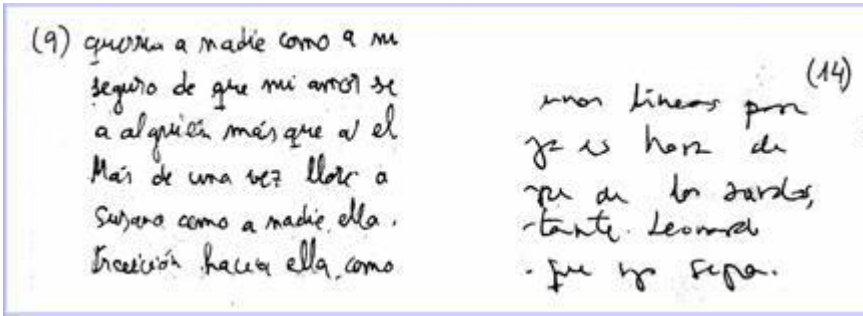 (9) querria a nadie como a mi
seguro de que mi amor se
a alguién más que a el
Más de una vez llore a
Susana como a nadie ella.
hacia ella como
(14)
unas lineas para
ya es hora de
que de los sardos,
-tante. Leonard
. que yo sepa.